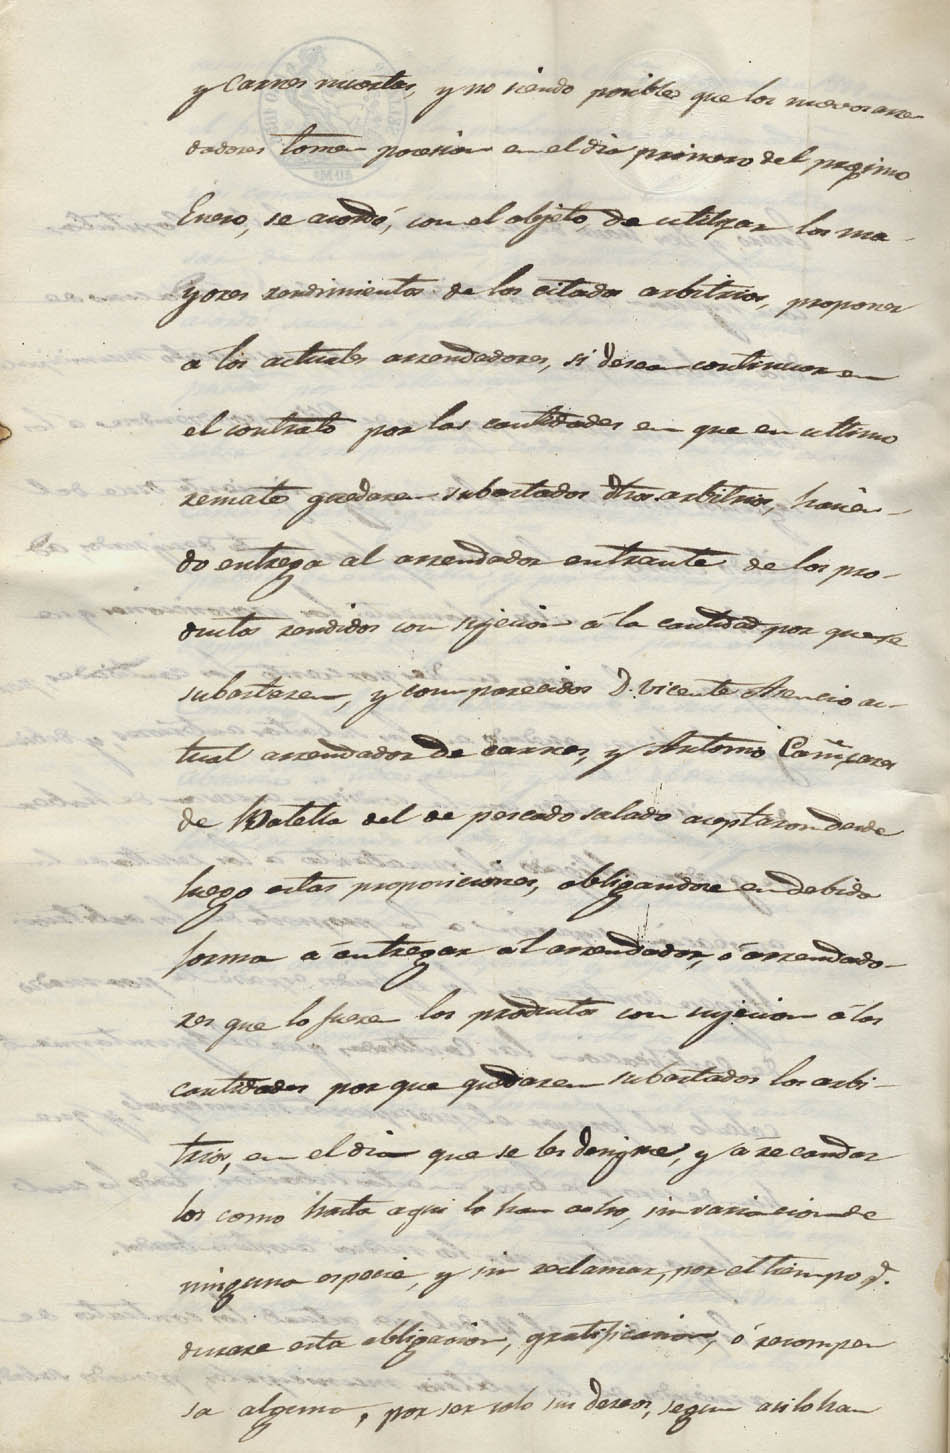 y Carnes muertas, y no siendo posible que los nuevos arren
dadores tomen posesion en el dia primero del proximo
Enero, se acordó, con el objeto de utilizar los ma-
yores rendimientos de los citados arbitrios, proponer
a los actuales arrendadores, si desean continuar en
el contrato por las cantidades en que en ultimo
remate quedaren subastados dhos. arbitrios, hacien-
do entrega al arrendador entrante de los pro-
ductos rendidos con sujecion á la cantidad por que se
subastaren, y comparecidos D. Vicente Asencio ac-
tual arrendador de carnes, y Antonio Cañizares
de Batella del de pescado salado aceptaron desde
luego estas proposiciones, obligandose en debida
forma a entregar al arrendador, ó arrendado-
res que lo fueren los productos con sujecion á las
cantidades por que quedaren subastados los arbi-
trios, en el dia que se les designe, y á recaudar
los como hasta aqui lo han echo, sin variacion de
ninguna especie, y sin reclamar, por el tiempo q.
durare esta obligacion, gratificacion, ó recompen
sa alguna, por ser solo sus deseos, segun asi lo han